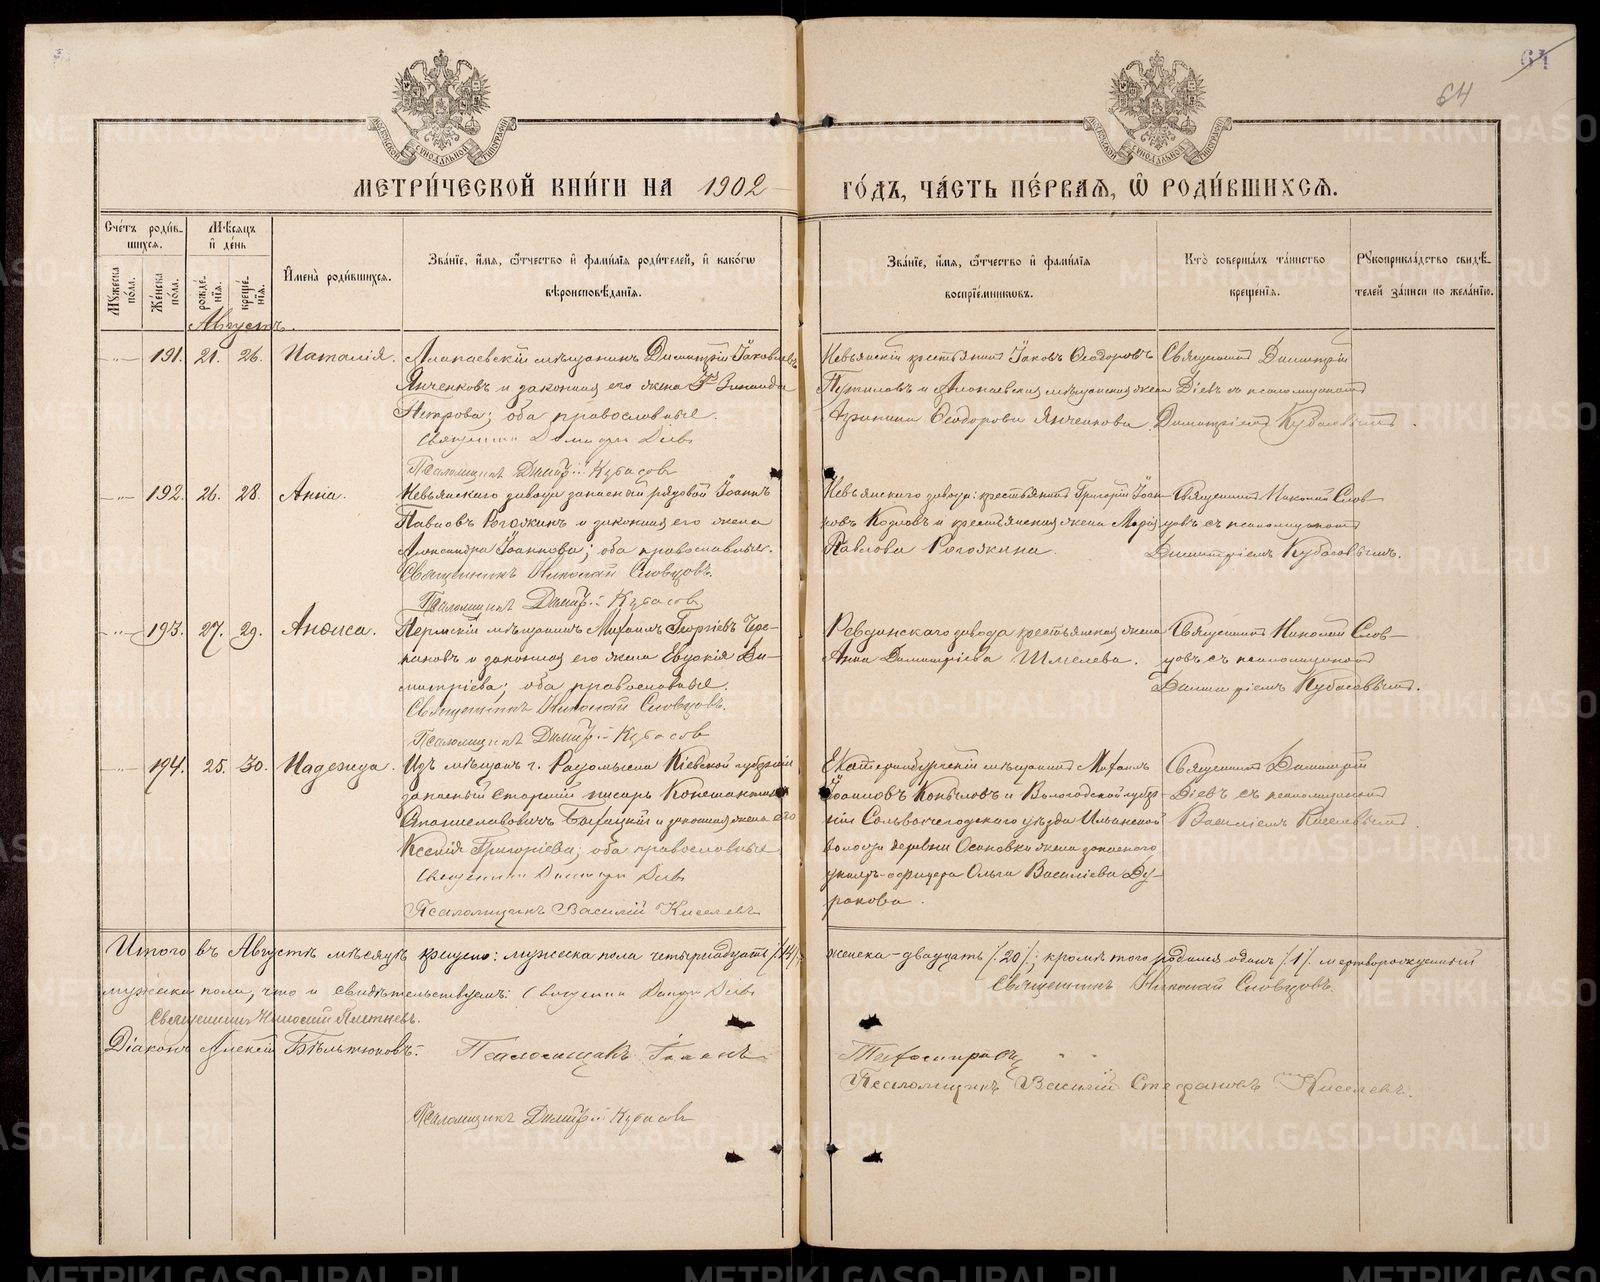 64
64
МЕТРИ́ЧЕСКОЙ КНИ́ГИ НА 1902 ГО́ДЪ, ЧА́СТЬ ПЕ́РВАЯ, Ѿ РОДИ́ВШИХСЯ.
Сче́тъ роди́в-
шихся.
Мѣ́сяцъ
и҆ де́нь
Мꙋжеска по́ла.
Же́нска по́ла.
рожде́-
нїя.
креще́-
нїя.
И҆мена̀ роди́вшихся.
Зва́нїе, и҆́мя, ѻ҆́тчество и҆ фами́лїя роди́телей, и҆ како́гѡ
вѣроисповѣ́данїя.
Зва́нїе, и҆́мя, ѻ҆́тчество и҆ фами́лїя
воспрїе́мниковъ.
Кто̀ соверша́лъ та́инство
креще́нїя.
Рꙋкоприкла́дство свидѣ́-
телей за́писи по жела́нїю.
Августъ.
191. 21. 26. Наталія.
Алапаевскій мѣщанинъ Димитрій Іаковлевъ
Янченковъ и законная его жена Зинаида
Петрова; оба православные.
Священникъ Димитрій Діевъ
Псаломщикъ Димитрій Кубасовъ
Невьянскій крестьянинъ Іаковъ Ѳеодоровъ
Путиловъ и Алапаевская мѣщанская жена
Ѳеодорова Янченкова.
Священникъ Димитрій
Діевъ съ псаломщикомъ
Димитріемъ Кубасовымъ.
192. 26. 28. Анна.
Невьянскаго завода запасный рядовой Іоаннъ
Павловъ Рогожкинъ и законная его жена
Александра Іоаннова; оба православные.
Священникъ Николай Словцовъ.
Псаломщикъ Димитрій Кубасовъ
Невьянскаго завода: крестьянинъ Григорій Іоан-
новъ Козловъ и крестьянская жена Марѳа
Павлова Рогожкина.
Священникъ Николай Слов-
цовъ съ псаломщикомъ
Димитріемъ Кубасовымъ.
193. 27. 29. Анфиса.
Пермскій мѣщанинъ Михаилъ Георгіевъ Чере-
пановъ и законная его жена Евдокія Ди-
митріева; оба православные.
Священникъ Николай Словцовъ.
Псаломщикъ Димитрій Кубасовъ
Ревдинскаго завода крестьянская жена
Анна Димитріева Шмелева.
Священникъ Николай Слов-
цовъ съ псаломщикомъ
Димитріемъ Кубасовымъ.
194. 25. 30. Надежда.
Изъ мѣщанъ г. Радомысла Кіевской губерніи
запасный старшій писарь Константинъ
Станиславовичъ и законная жена его
Ксенія Григоріева; оба православные
Священникъ Димитрій Діевъ
Псаломщикъ Василій Киселевъ
Екатеринбургскій мѣщанинъ Михаилъ
Іоанновъ Копыловъ и Вологодской губер-
ніи Сольвычегодскаго уѣзда Ильинской
волости деревни Осиновки жена запаснаго
унтеръ-офицера Ольга Василіева Ду-
ракова.
Священникъ Димитрій
Діевъ съ псаломщикомъ
Василіемъ Киселевымъ.
Итого въ Августѣ мѣсяцѣ крещено: мужеска пола четырнадцать /14/, женска - двадцать /20/; кромѣ того родился одинъ /1/ мертворожденный
мужска пола, что и свидѣтельствуемъ: Священникъ Димитрій Діевъ
Священникъ Николай Словцовъ.
Священникъ Николай
Діаконъ Алексій Бѣльтюковъ.
Псаломщикъ Іоаннъ
Псаломщикъ Василій Стефановъ Киселевъ.
Псаломщикъ Димитрій Кубасовъ
METRIKI.GASO-URAL.RU